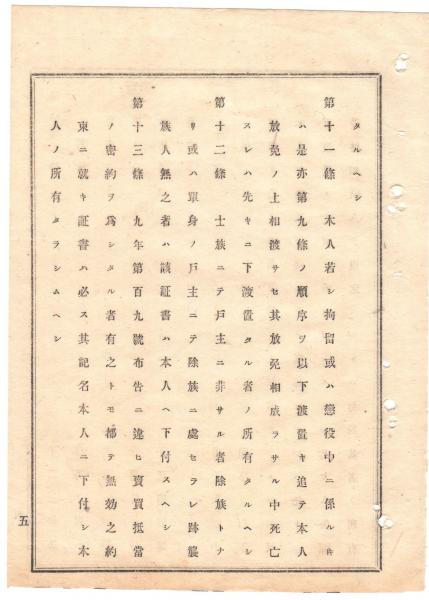 タルヘシ
第十一條 本人若シ拘留或ハ懲役中ニ係ル𪜈
ハ是亦第九條ノ順序ヲ以下渡置キ追テ本人
放免ノ上相渡サセ其放免相成ラサル中死亡
スレハ先キニ下渡置タル者ノ所有タルヘシ
第十二條 士族ニテ戸主ニ非サル者除族トナ
リ或ハ單身ノ戸主ニテ除族ニ處セラレ跡襲
族人無之者ハ該証書ハ本人ヘ下付スヘシ
第十三條 九年第百九號布告ニ違ヒ賣買抵當
ノ密約ヲ爲シタル者有之トモ都テ無効之約
束ニ就キ証書ハ必ス其記名本人ニ下付シ本
人ノ所有タラシムヘシ
五